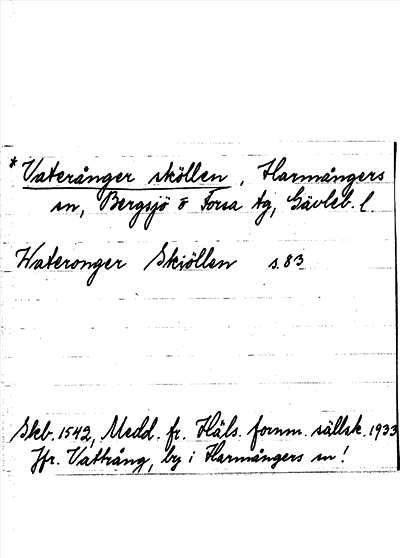 * Vateränger sköllen, Harmångers
sn, Bergsjö o Forsa tg, Gävleb. l.
Wateronger Skiöllen s. 83
Skb. 1542, Medd. fr. Häls. fornm. sällsk. 1933
Jfr. Vattrång, by i Harmångers sn!